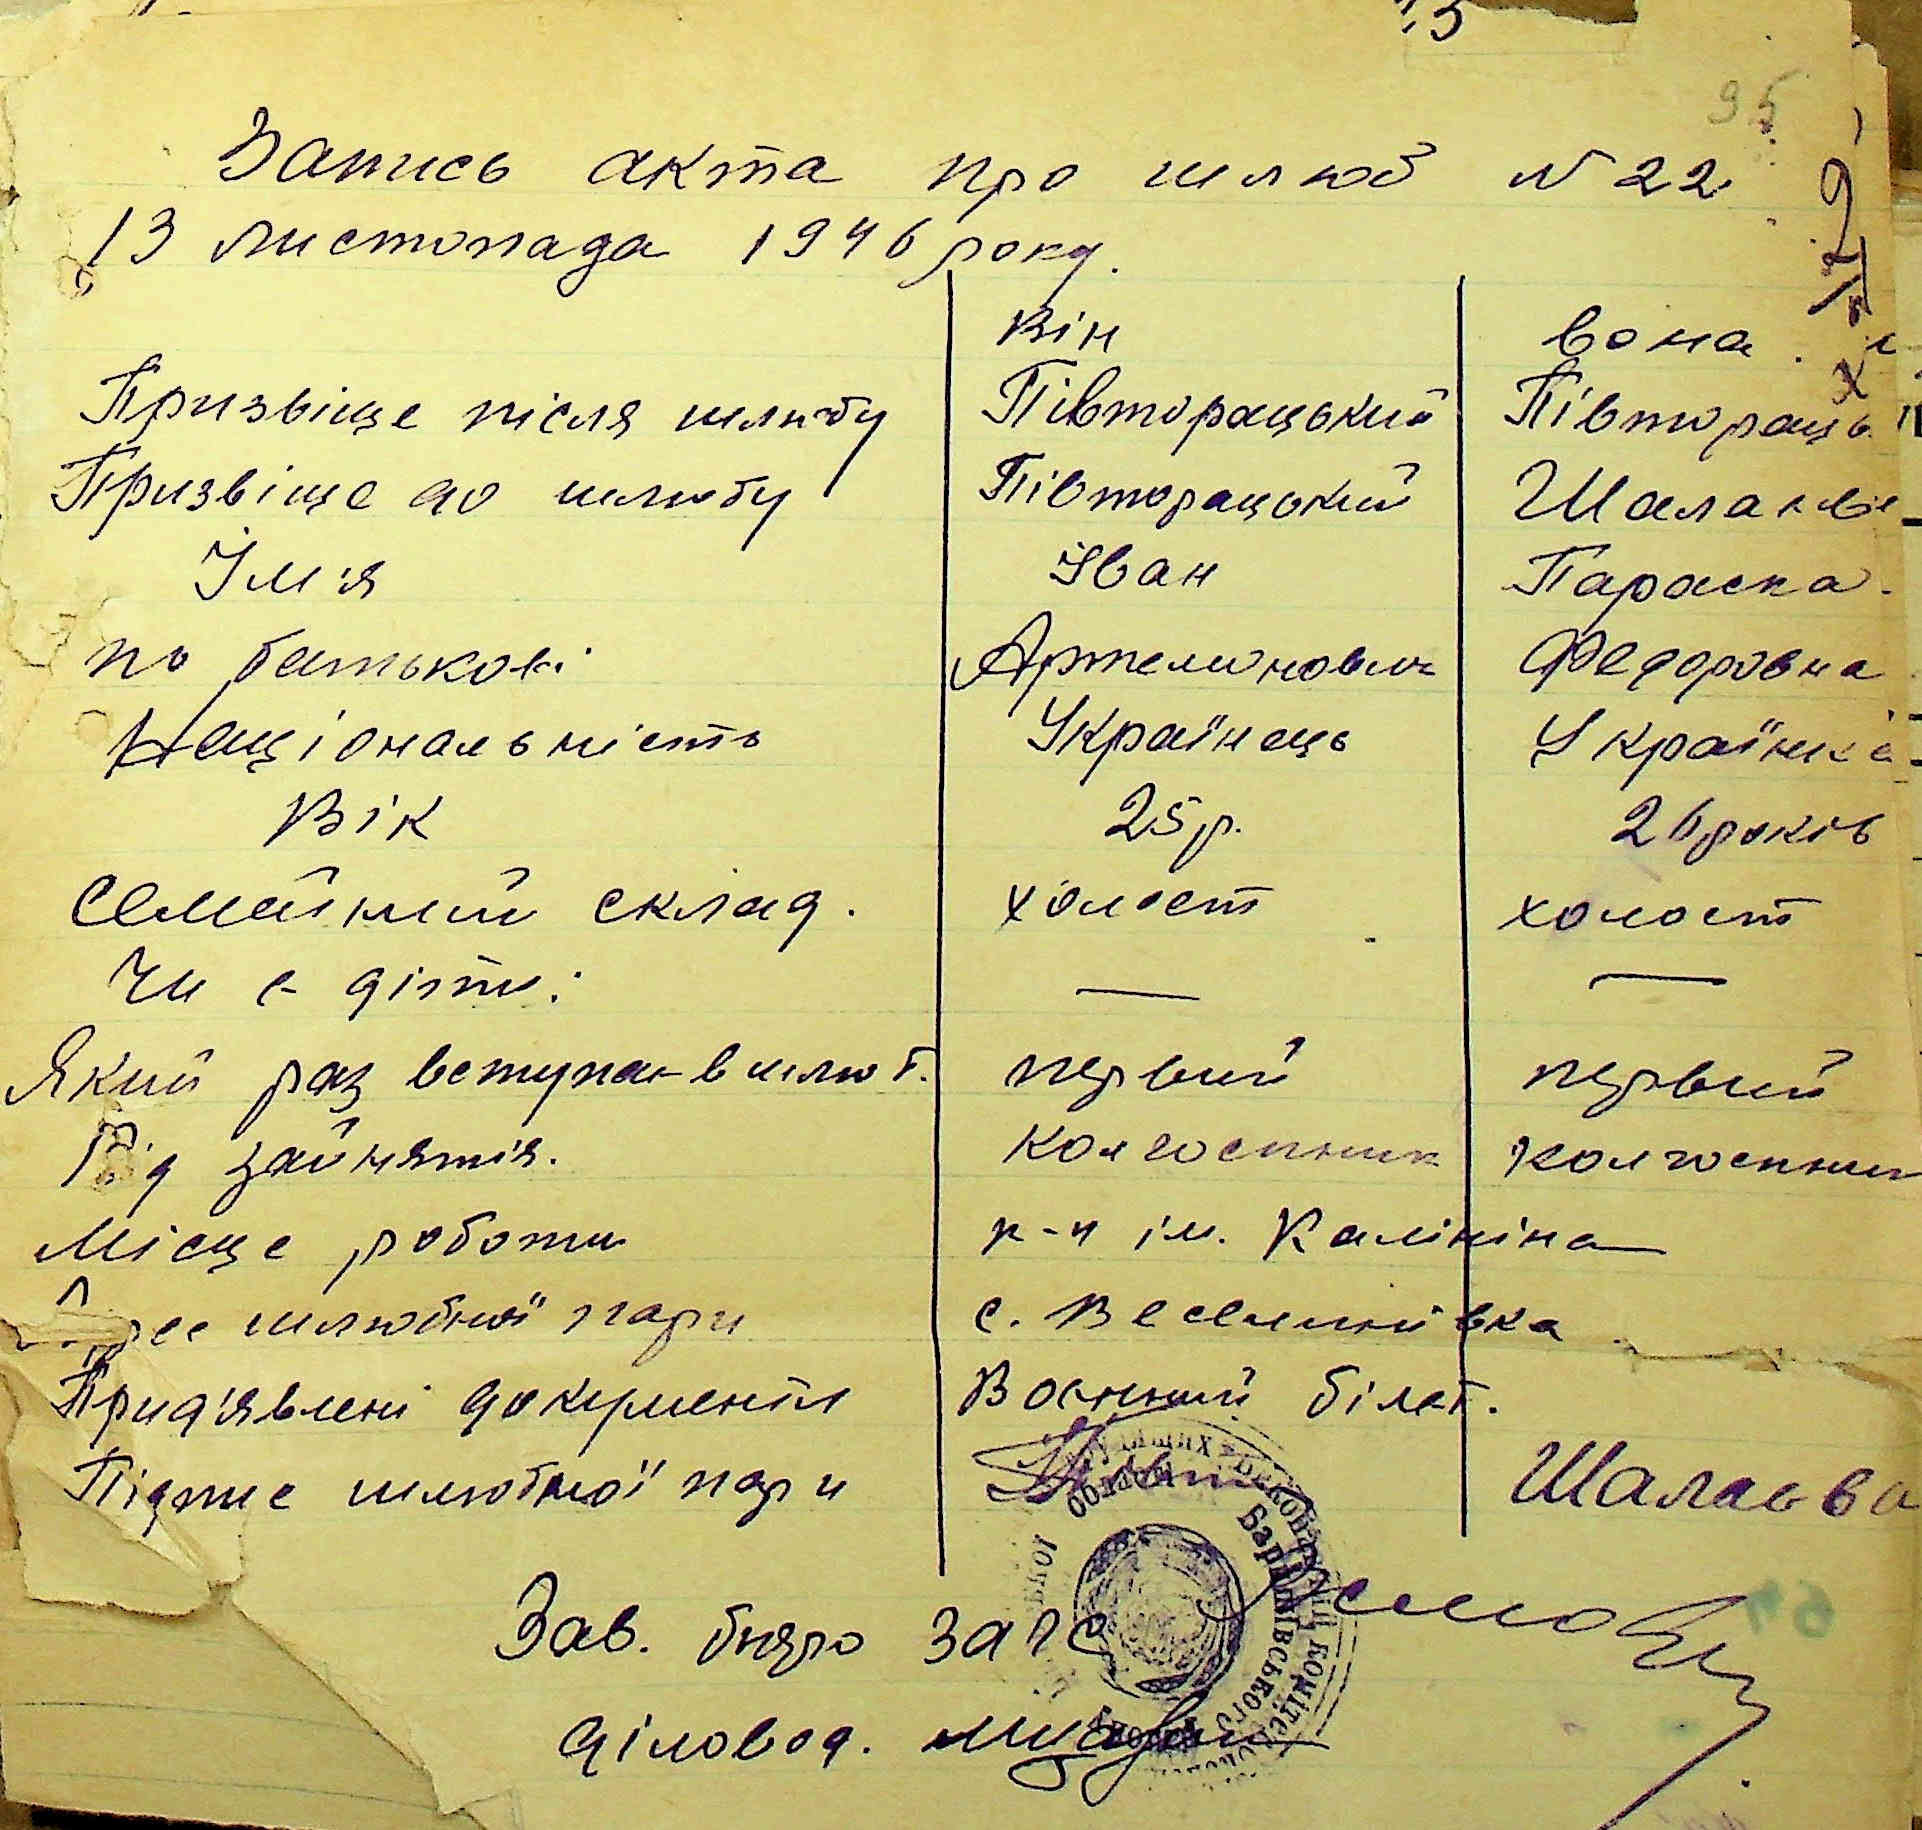 95
Запись акта про шлюб N 22
13 листопада 1946 року.
Він вона.
Призвіще після шлюбу Півторацький Півтораць
Призвіще до шлюбу Півторацький
Імʼя Іван Параска
по батькові Артемонович Федоровна
Національність Українець Українка
Вік 25 р. 26 років
Семейний склад. холост холост
Чи є діти: — —
Який раз вступає в шлюб. первий первий
Рід зайнятія. колгоспник колгоспник
Місце роботи к-п ім. Калініна
шлюбної пари с. Веселинівка
Придʼявлені документи Воєнний білет.
Підпис шлюбної пари Шалаєва
Зав. бюро загс
діловод.